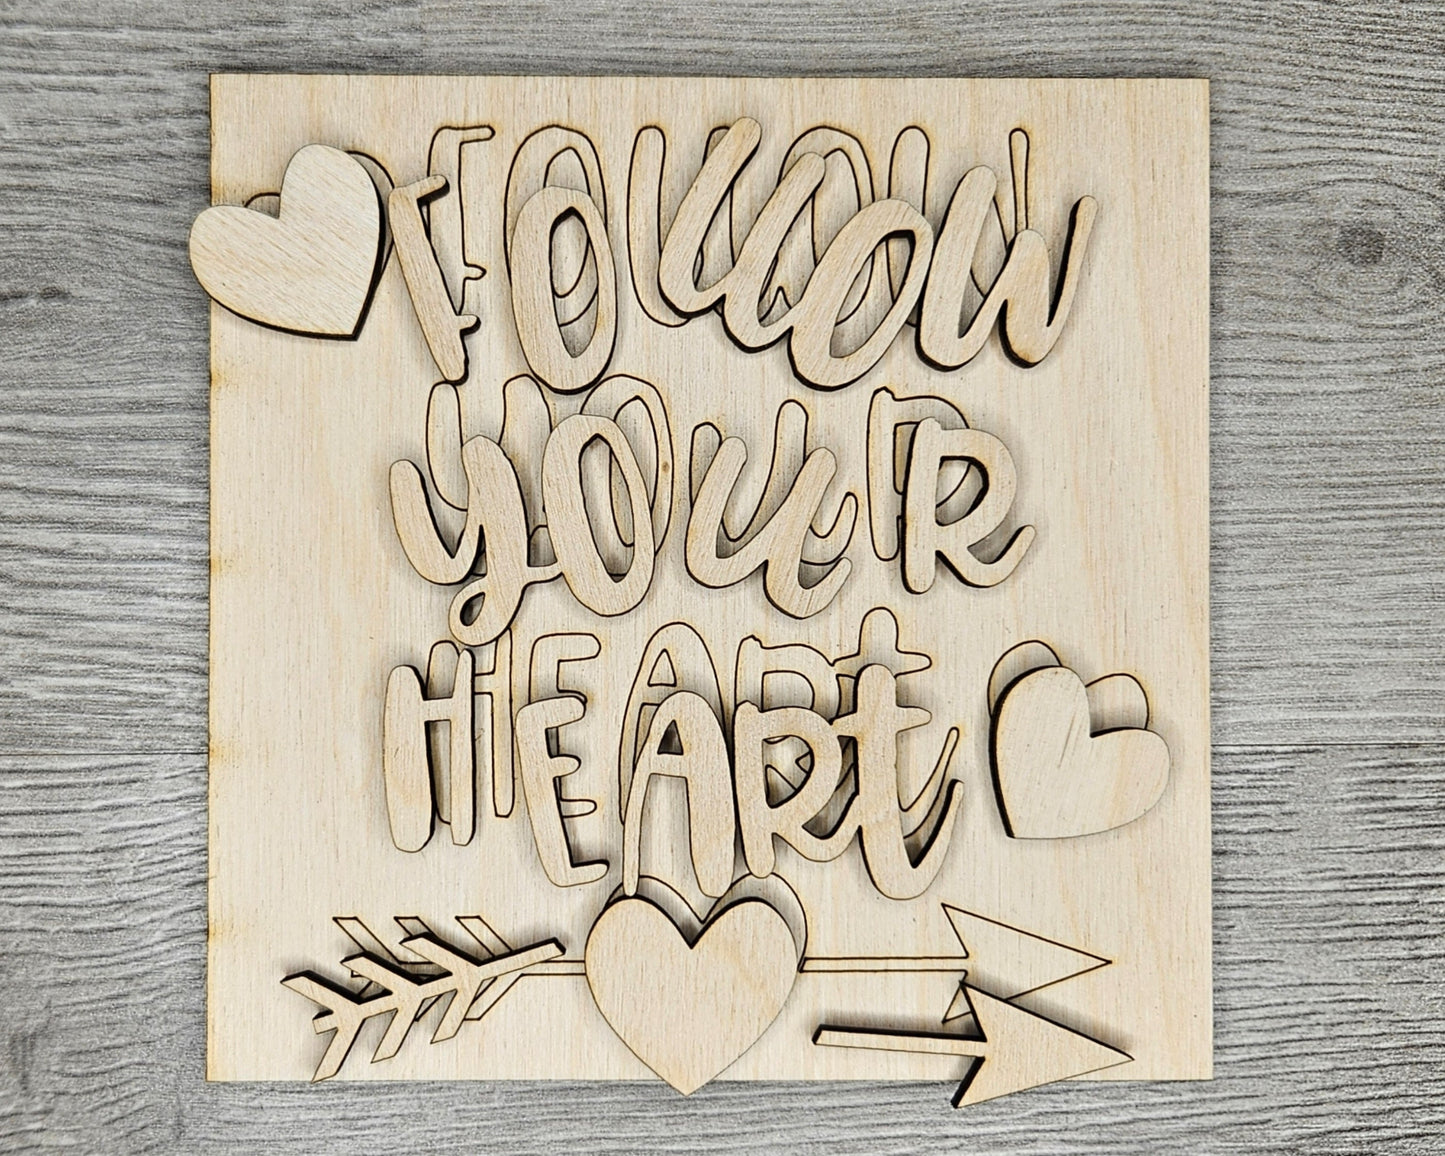 FOllOW
yOuR
HEARt